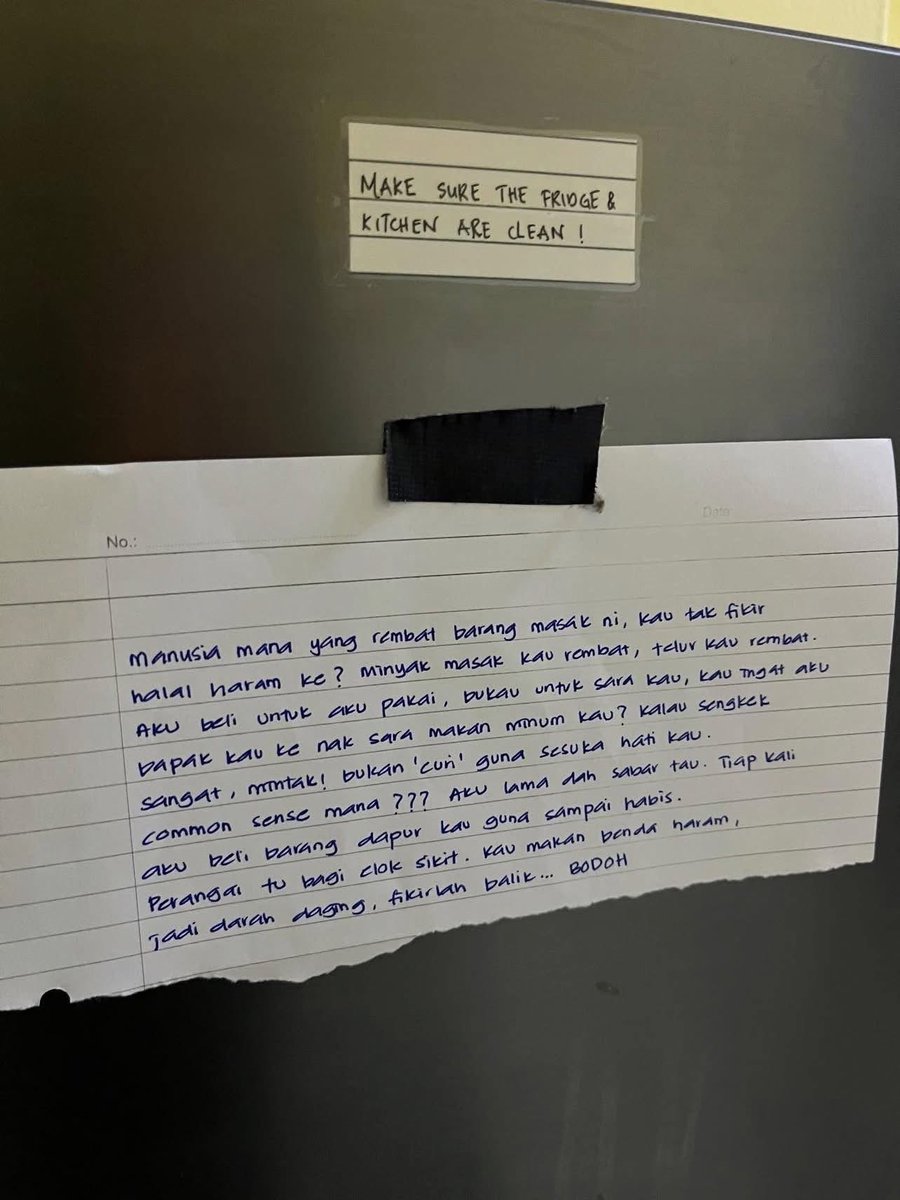 MAKE SURE THE FRIDGE &
KITCHEN ARE CLEAN !
No.:
Date
Manusia mana yang rembat barang masak ni, kau tak fikir
halal haram ke? Minyak masak kau rembat, telur kau rembat.
Aku beli untuk aku pakai, bukan untuk sara kau, kau ingat aku
bapak kau ke nak sara makan minum kau? Kalau sengkek
sangat, mintak! bukan 'curi' guna sesuka hati kau.
common sense mana ??? Aku lama dah sabar tau. Tiap kali
aku beli barang dapur kau guna sampai habis.
Perangai tu bagi elok sikit. Kau makan benda haram,
jadi darah daging, fikirlah balik... BODOH